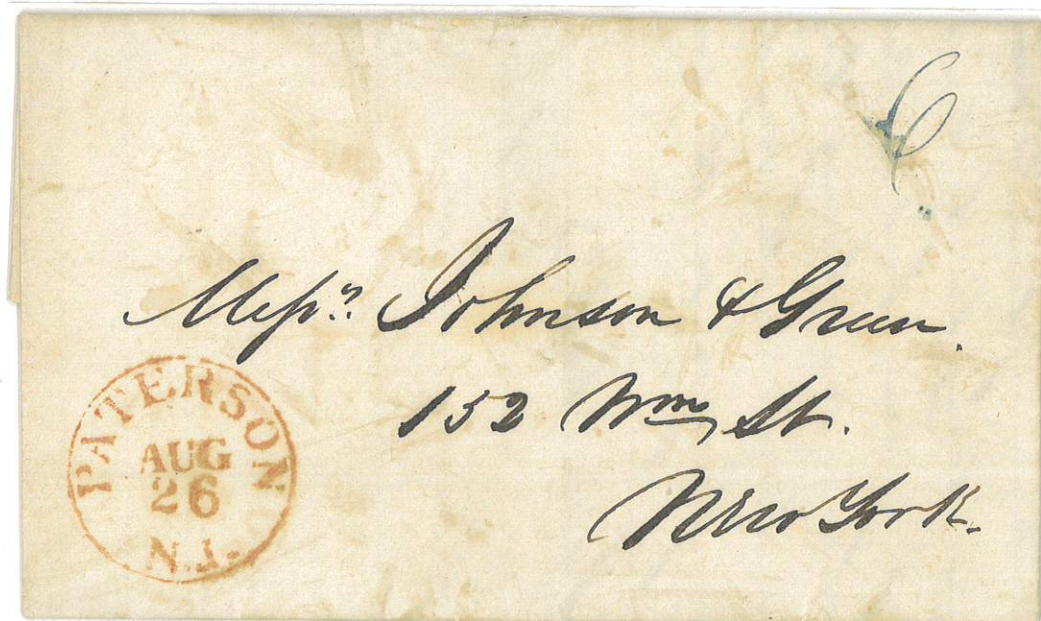 6
Messrs. Johnson & Green.
152 Wm St.
New York.
PATERSON
AUG
26
N.J.